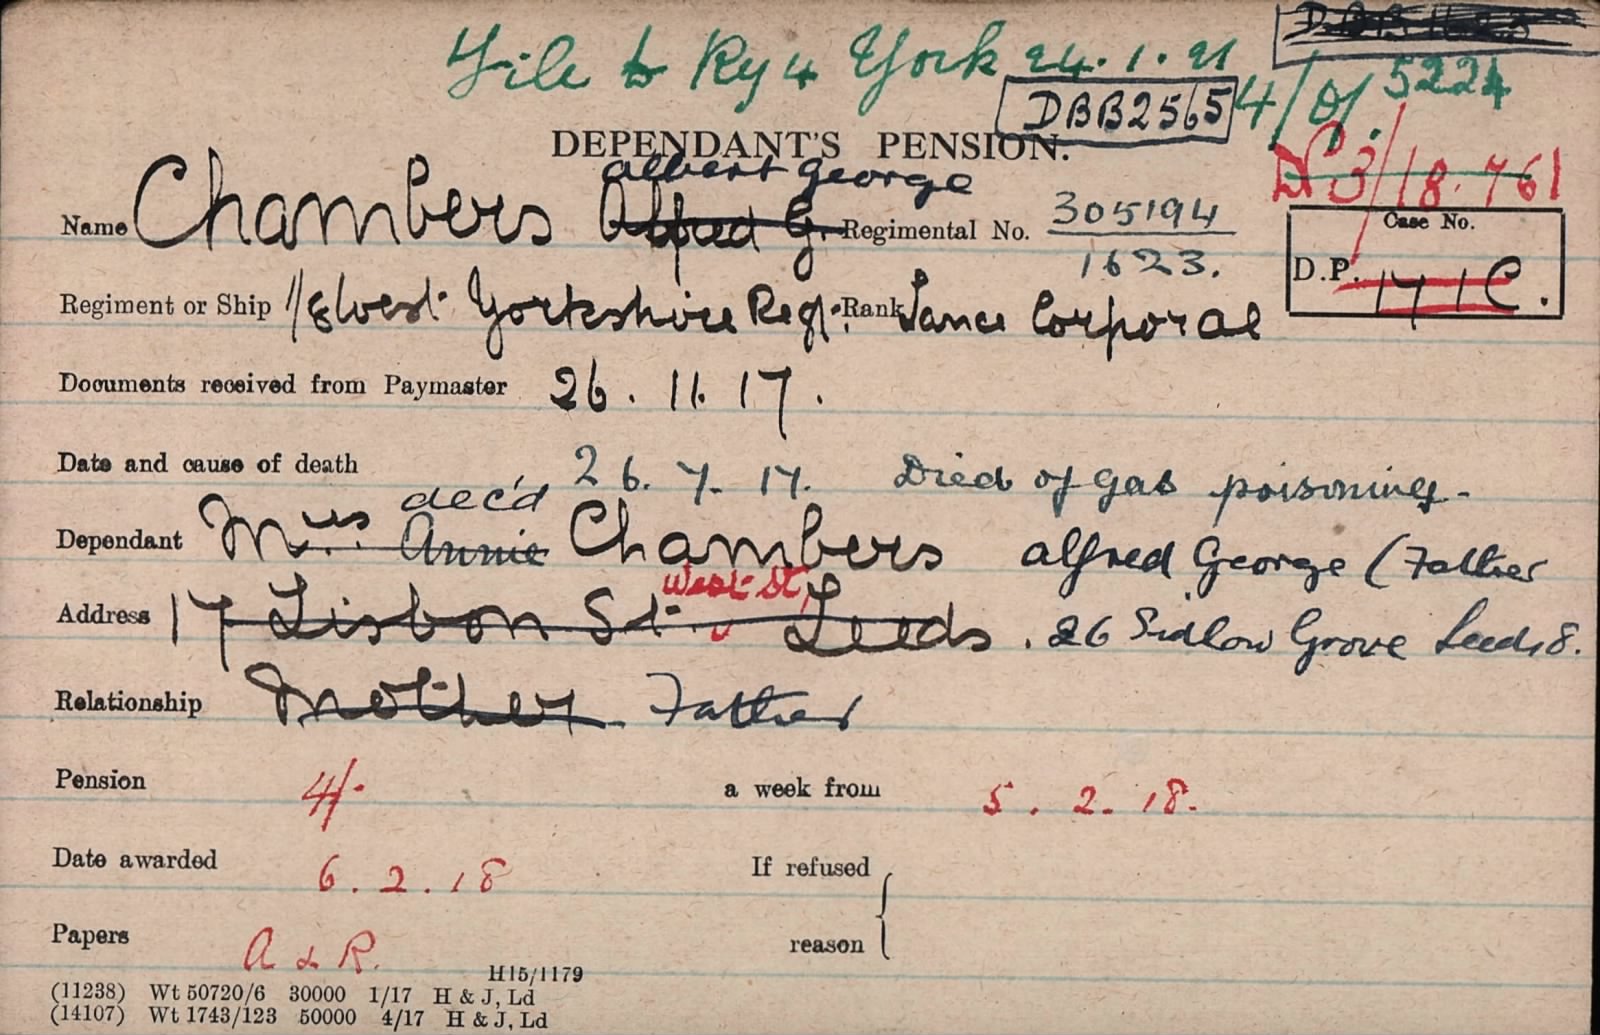 File to Ry 4 York 24.1.21
DBB2565 4/D/ 5224
DEPENDANT'S PENSION.
3/18.761
Albert George
Name Chambers Alfred G. Regimental No. 305194
1623.
Case No.
D.P. 171C.
Regiment or Ship 1/8 West Yorkshire Regt. Rank Lance Corporal
Documents received from Paymaster 26. 11. 17.
Date and cause of death 26. 7. 17. Died of gas poisoning.
dec'd
Dependant Mrs Annie Chambers Alfred George (Father
West St,
Address 17 Lisbon St. Leeds. 26 Sidlow Grove Leeds 8.
Relationship Mother Father
Pension 4/- a week from 5. 2. 18.
Date awarded 6. 2. 18 If refused
Papers A & R. reason
H15/1179
(11238) Wt 50720/6 30000 1/17 H & J, Ld
(14107) Wt 1743/123 50000 4/17 H & J, Ld